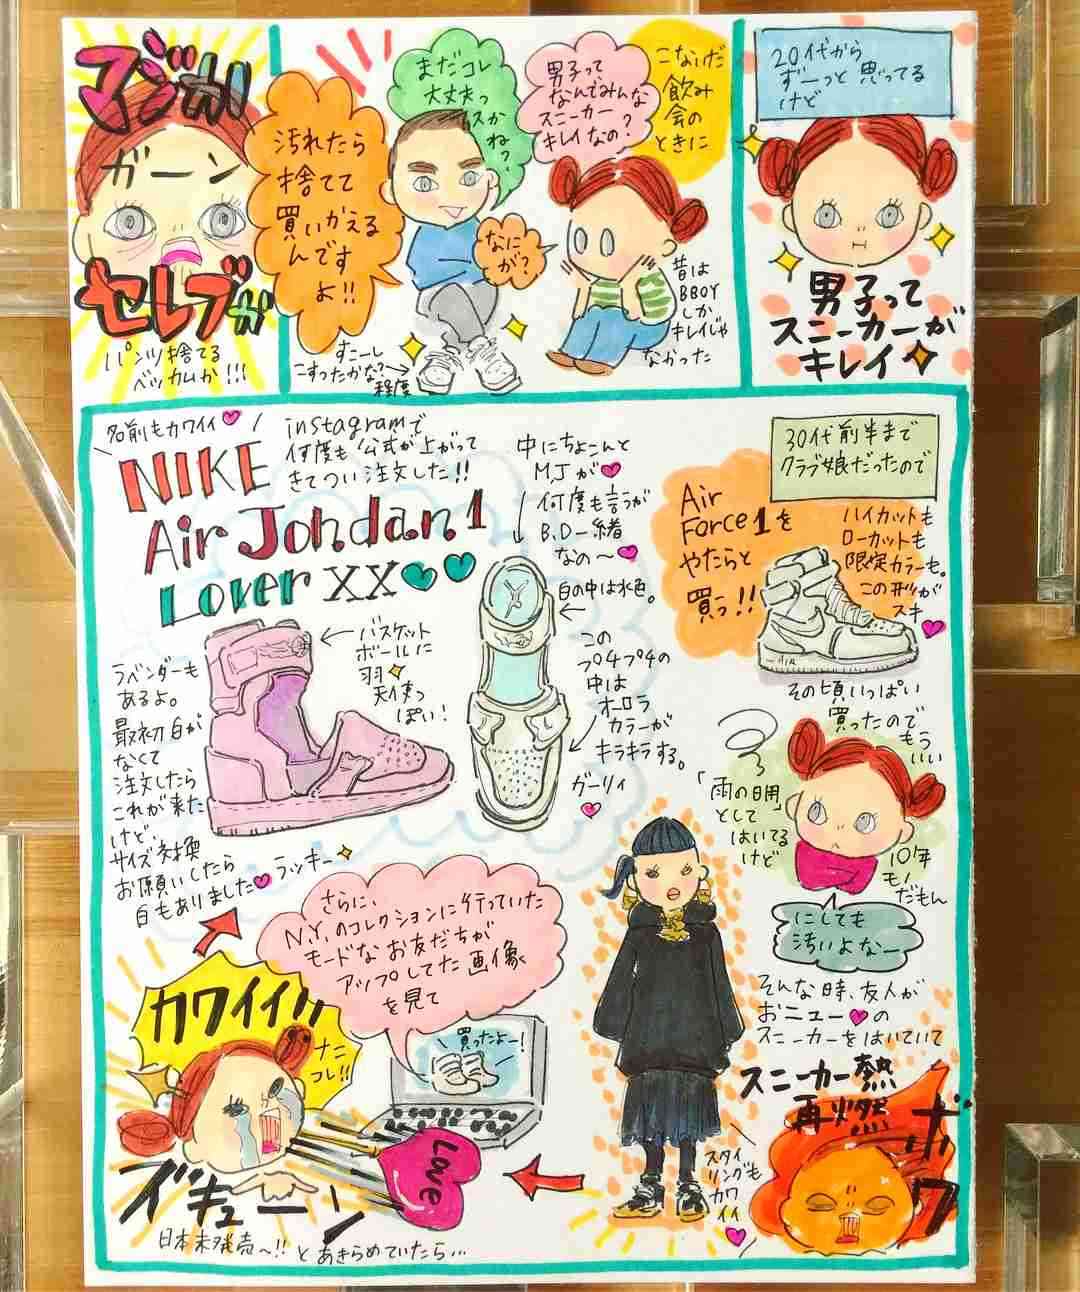 20代から
ずーっと思ってる
けど
男子って
スニーカーが
キレイ
こないだ
飲み
会の
ときに
男子って
なんでみんな
スニーカー
キレイなの?
昔は
BBOY
しか
キレイじゃ
なかった
まだコレ
大丈夫っ
スかね?
なに
が?
すこーし
こすったかな?
程度
汚れたら
捨てて
買いかえる
んです
よ!!
マジか
ガーン
セレブか
パンツ捨てる
ベッカムか!!!
30代前半まで
クラブ娘だったので
Air
Force1を
やたらと
買っ!!
ハイカットも
ローカットも
限定カラーも。
この形が
スキ
その頃いっぱい
買ったので
もう
いい
「雨の日用」
として
はいてる
けど
10年
モノ
だもん
にしても
汚いよなー
そんな時、友人が
おニューの
スニーカーをはいていて
スニーカー熱
再燃
ボワ
スタイ
リングも
カワ
イイ
さらに、
N.Y.のコレクションに行っていた
モードなお友だちが
アップしてた画像
を見て
買ったよー!
Love
カワイイ!!
ナニ
コレ!!
ズキューン
日本未発売〜!!
とあきらめていたら…
instagramで
何度も公式が上がって
きてつい注文した!!
名前もカワイイ
NIKE
Air Jondan1
Lover XX
中にちょこんと
M.Jが
何度も言うが
B.D一緒
なの〜
白の中は水色。
この
プチプチの
中は
オーロラ
カラーが
キラキラする。
ガーリィ
バスケット
ボールに
羽
天使っ
ぽい!
ラベンダーも
あるよ。
最初白が
なくて
注文したら
これが来た
けど、
サイズ交換
お願いしたら
白もありました
ラッキー